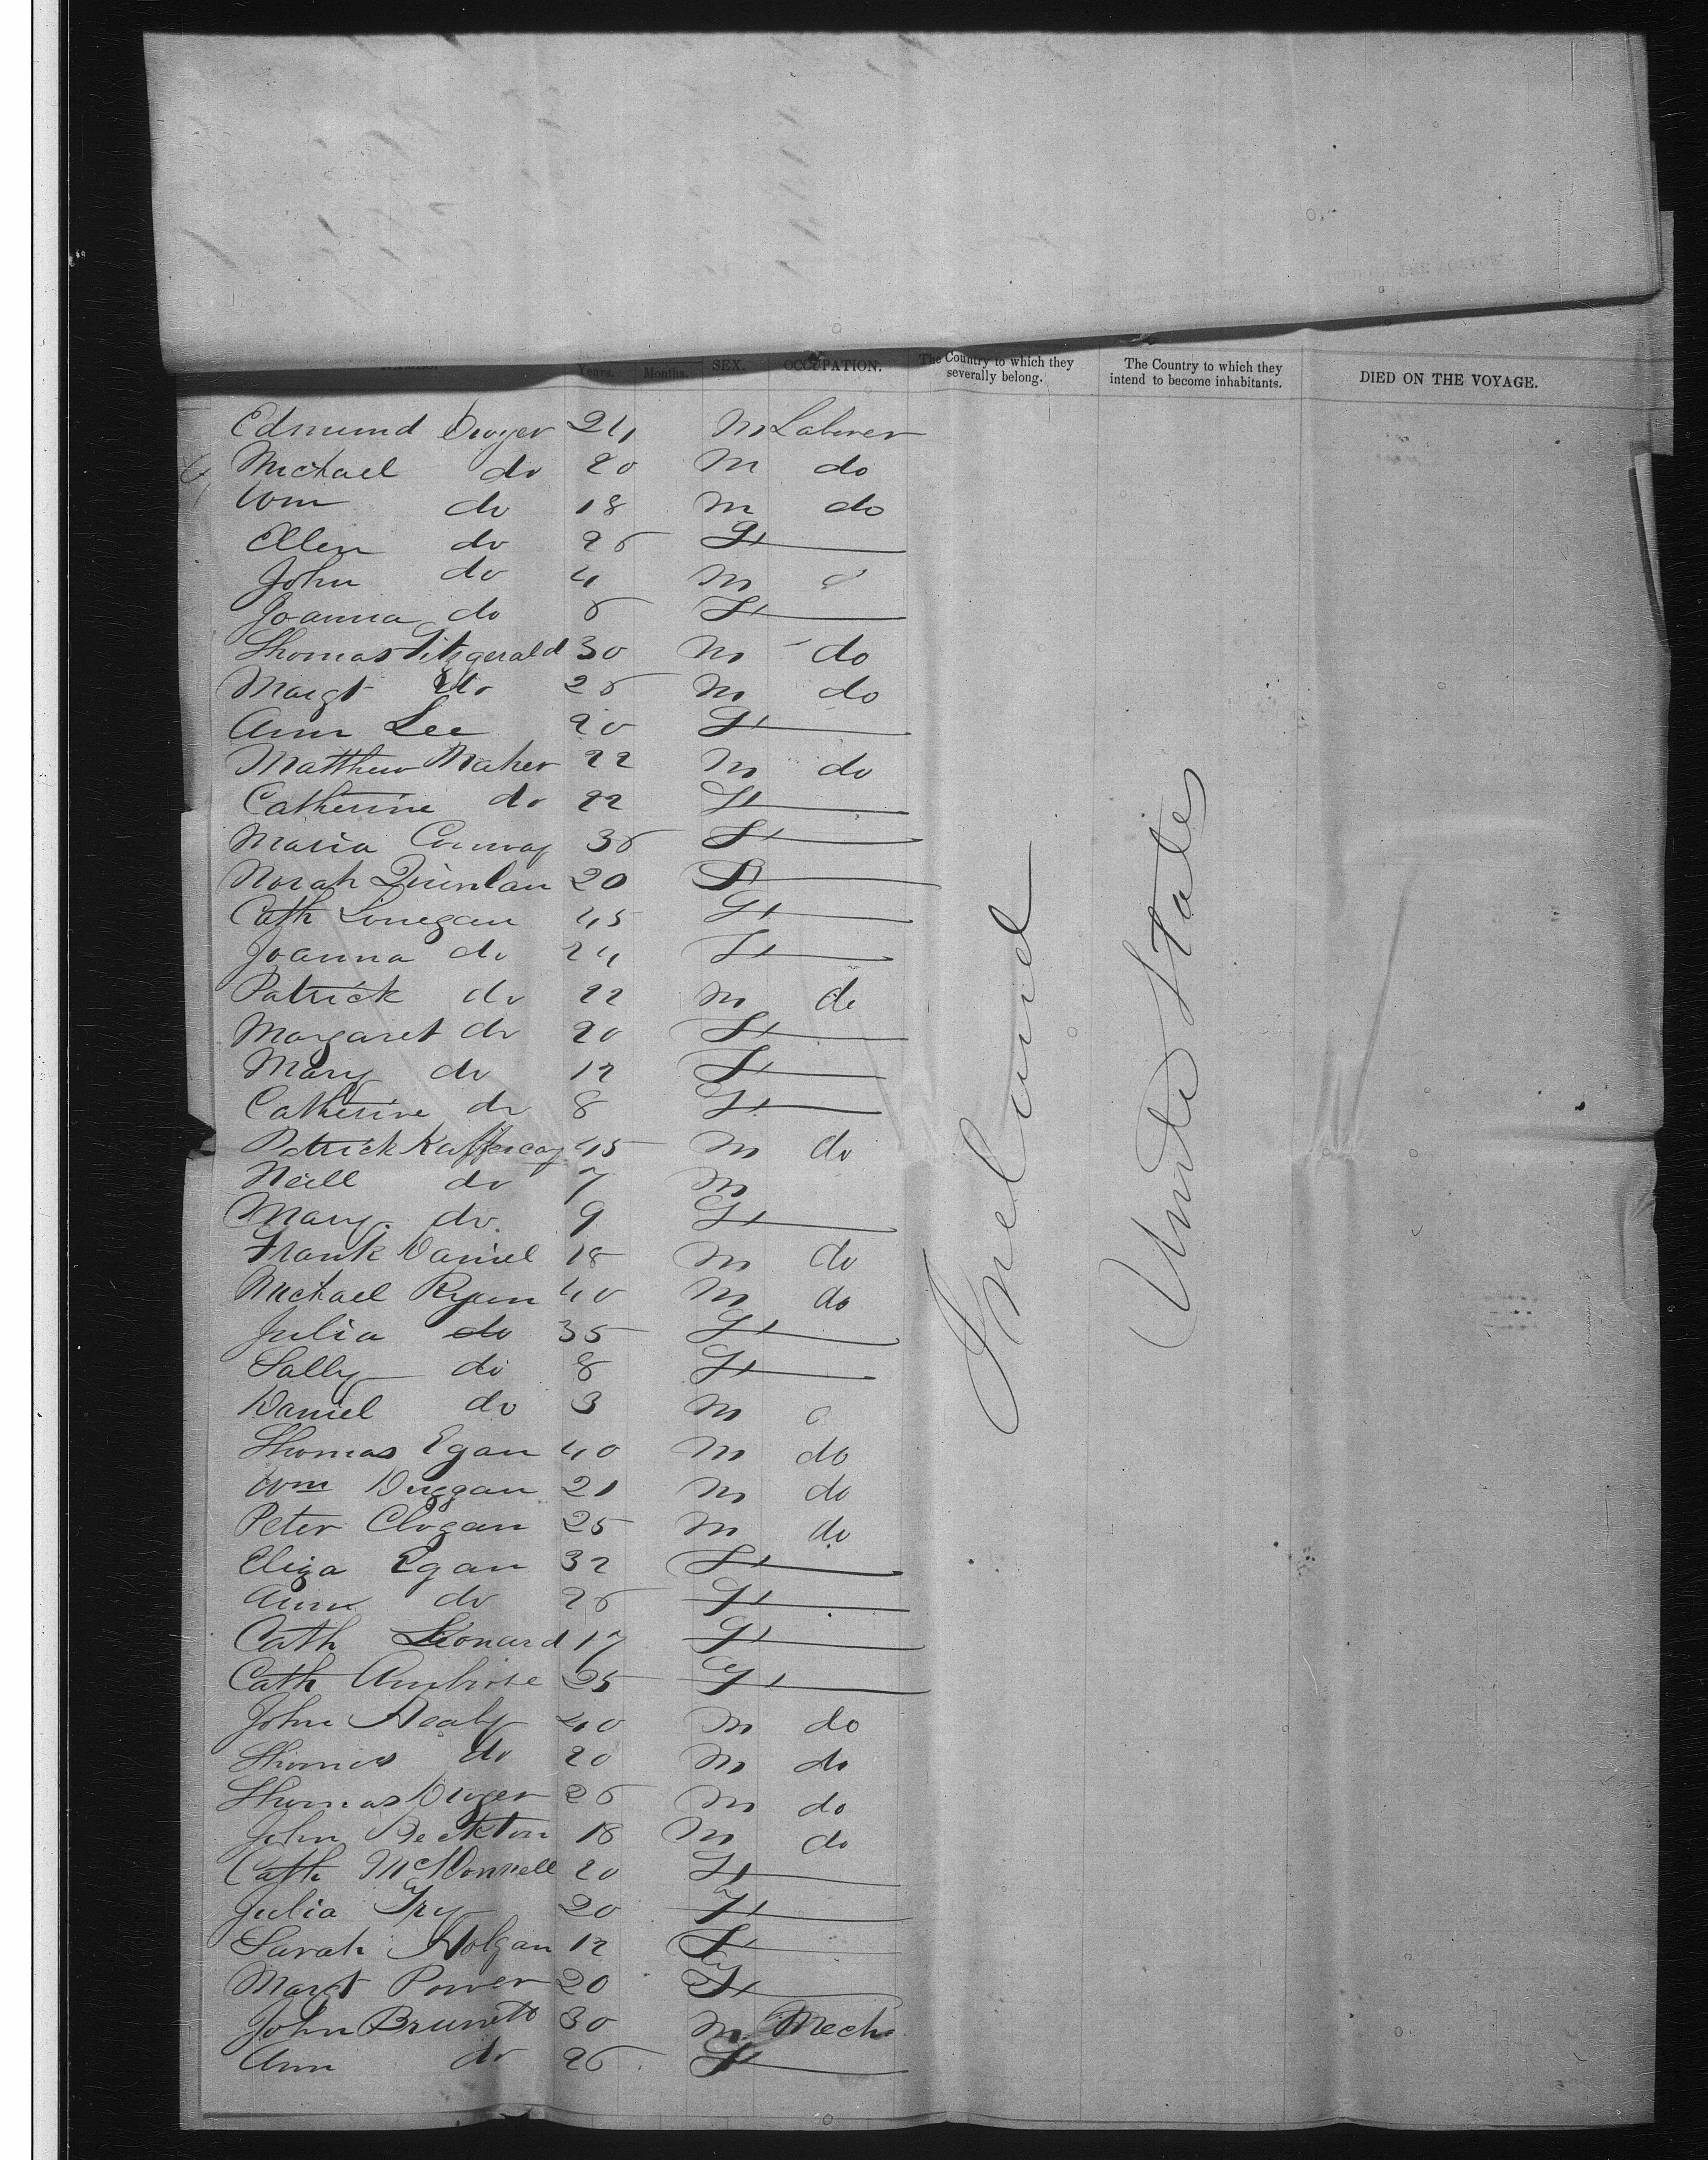 Years. Months. SEX. OCCUPATION. The Country to which they severally belong. The Country to which they intend to become inhabitants. DIED ON THE VOYAGE.
Edmund Dwyer 24 M Laborer
Michael do 20 M do
Wm do 18 M do
Ellen do 26 F
John do 4 M
Joanna do 6 F
Thomas Fitzgerald 30 M do
Margt do 26 M do
Ann Lee 20 F
Matthew Maher 22 M do
Catherine do 22 F
Maria Conway 36 F
Norah Quinlan 20 F
Cath Lonegan 45 F
Joanna do 24 F
Patrick do 22 M do
Margaret do 20 F
Mary do 12 F
Catherine do 8 F
Patrick 45 M do
Neill do 7 M
Mary do 9 F
Frank Daniel 18 M do
Michael Ryan 40 M do
Julia do 35 F
Sally do 8 F
Daniel do 3 M
Thomas Egan 40 M do
Wm Duggan 21 M do
Peter Clogan 25 M do
Eliza Egan 32 F
Ann do 26 F
Cath Leonard 17 F
Cath Ambrose 25 F
John Healy 40 M do
Thomas do 20 M do
Thomas Dwyer 26 M do
John Beckton 18 M do
Cath McDonnell 20 F
Julia Fry 20 F
Sarah Holgan 12 F
Margt Power 20 F
John Brunett 30 M Mech
Ann do 26 F
Ireland
United States